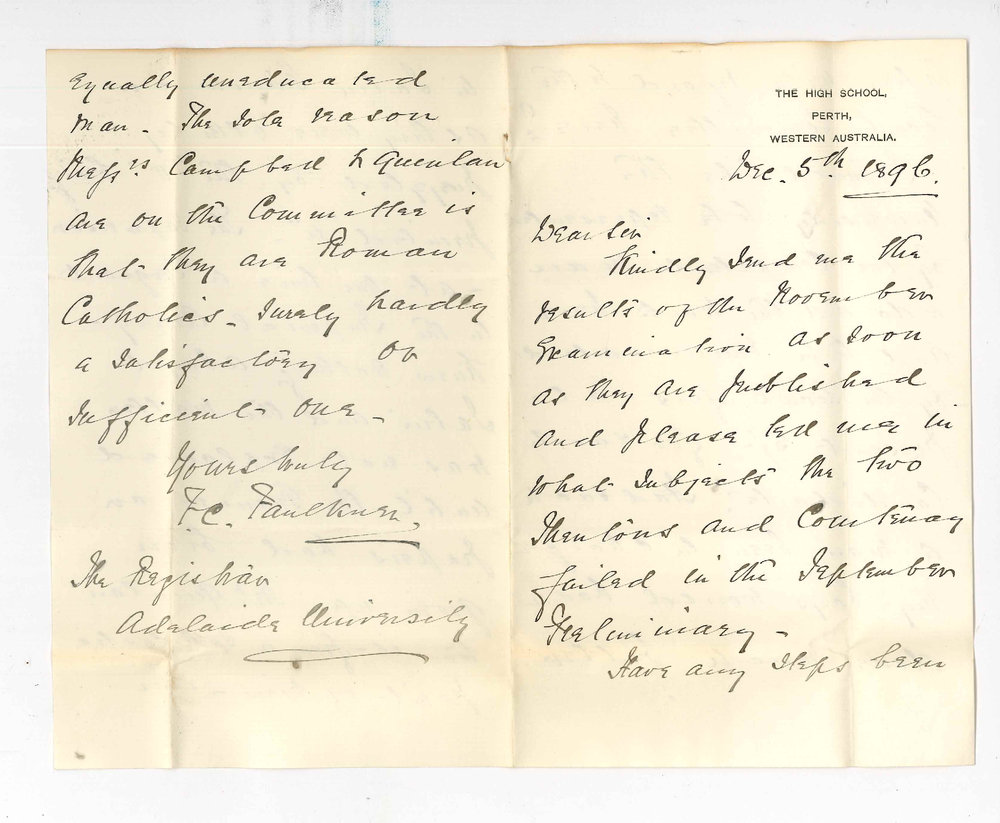 THE HIGH SCHOOL,
PERTH,
WESTERN AUSTRALIA.
Dec. 5th 1896.
Dear Sir
Kindly send me the
results of the November
Examination as soon
as they are published
and please tell me in
what subjects the two
Shentons and Courtenay
failed in the September
Preliminary -
Have any steps been
equally uneducated
man - The sole reason
Messrs. Campbell & Quinlan
are on the Committee is
that they are Roman
Catholics - Surely hardly
a satisfactory or
sufficient one -
Yours truly
F. C. Faulkner.
The Registrar
Adelaide University